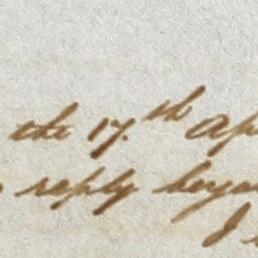 the 17.th Ap
reply beyo
I